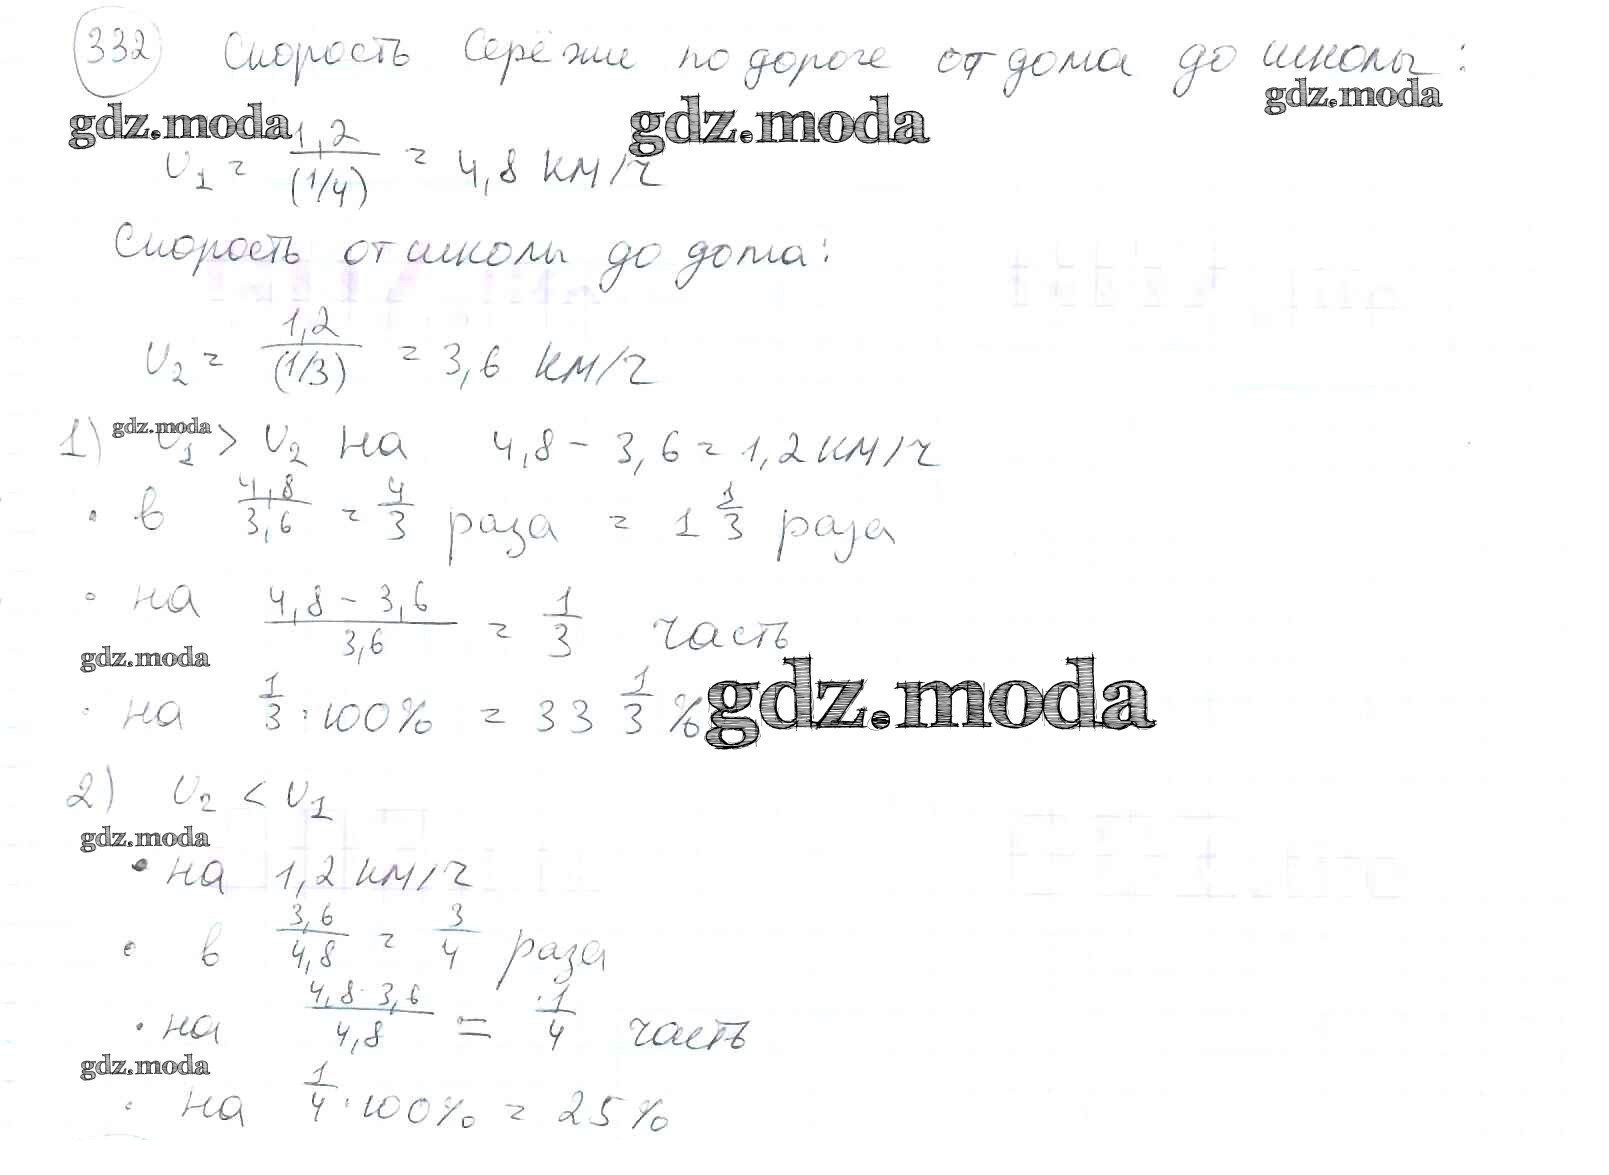 332 Скорость Серёжи по дороге от дома до школы:
gdz.moda gdz.moda gdz.moda
υ₁ = 1,2/(1/4) = 4,8 км/ч
Скорость от школы до дома:
υ₂ = 1,2/(1/3) = 3,6 км/ч
1) gdz.moda υ₁ > υ₂ на 4,8 - 3,6 = 1,2 км/ч
· в 4,8/3,6 = 4/3 раза = 1 1/3 раза
· на (4,8 - 3,6)/3,6 = 1/3 часть
gdz.moda
· на 1/3 · 100% = 33 1/3 % gdz.moda
2) υ₂ < υ₁
gdz.moda
· на 1,2 км/ч
· в 3,6/4,8 = 3/4 раза
· на (4,8 - 3,6)/4,8 = 1/4 часть
gdz.moda
· на 1/4 · 100% = 25%